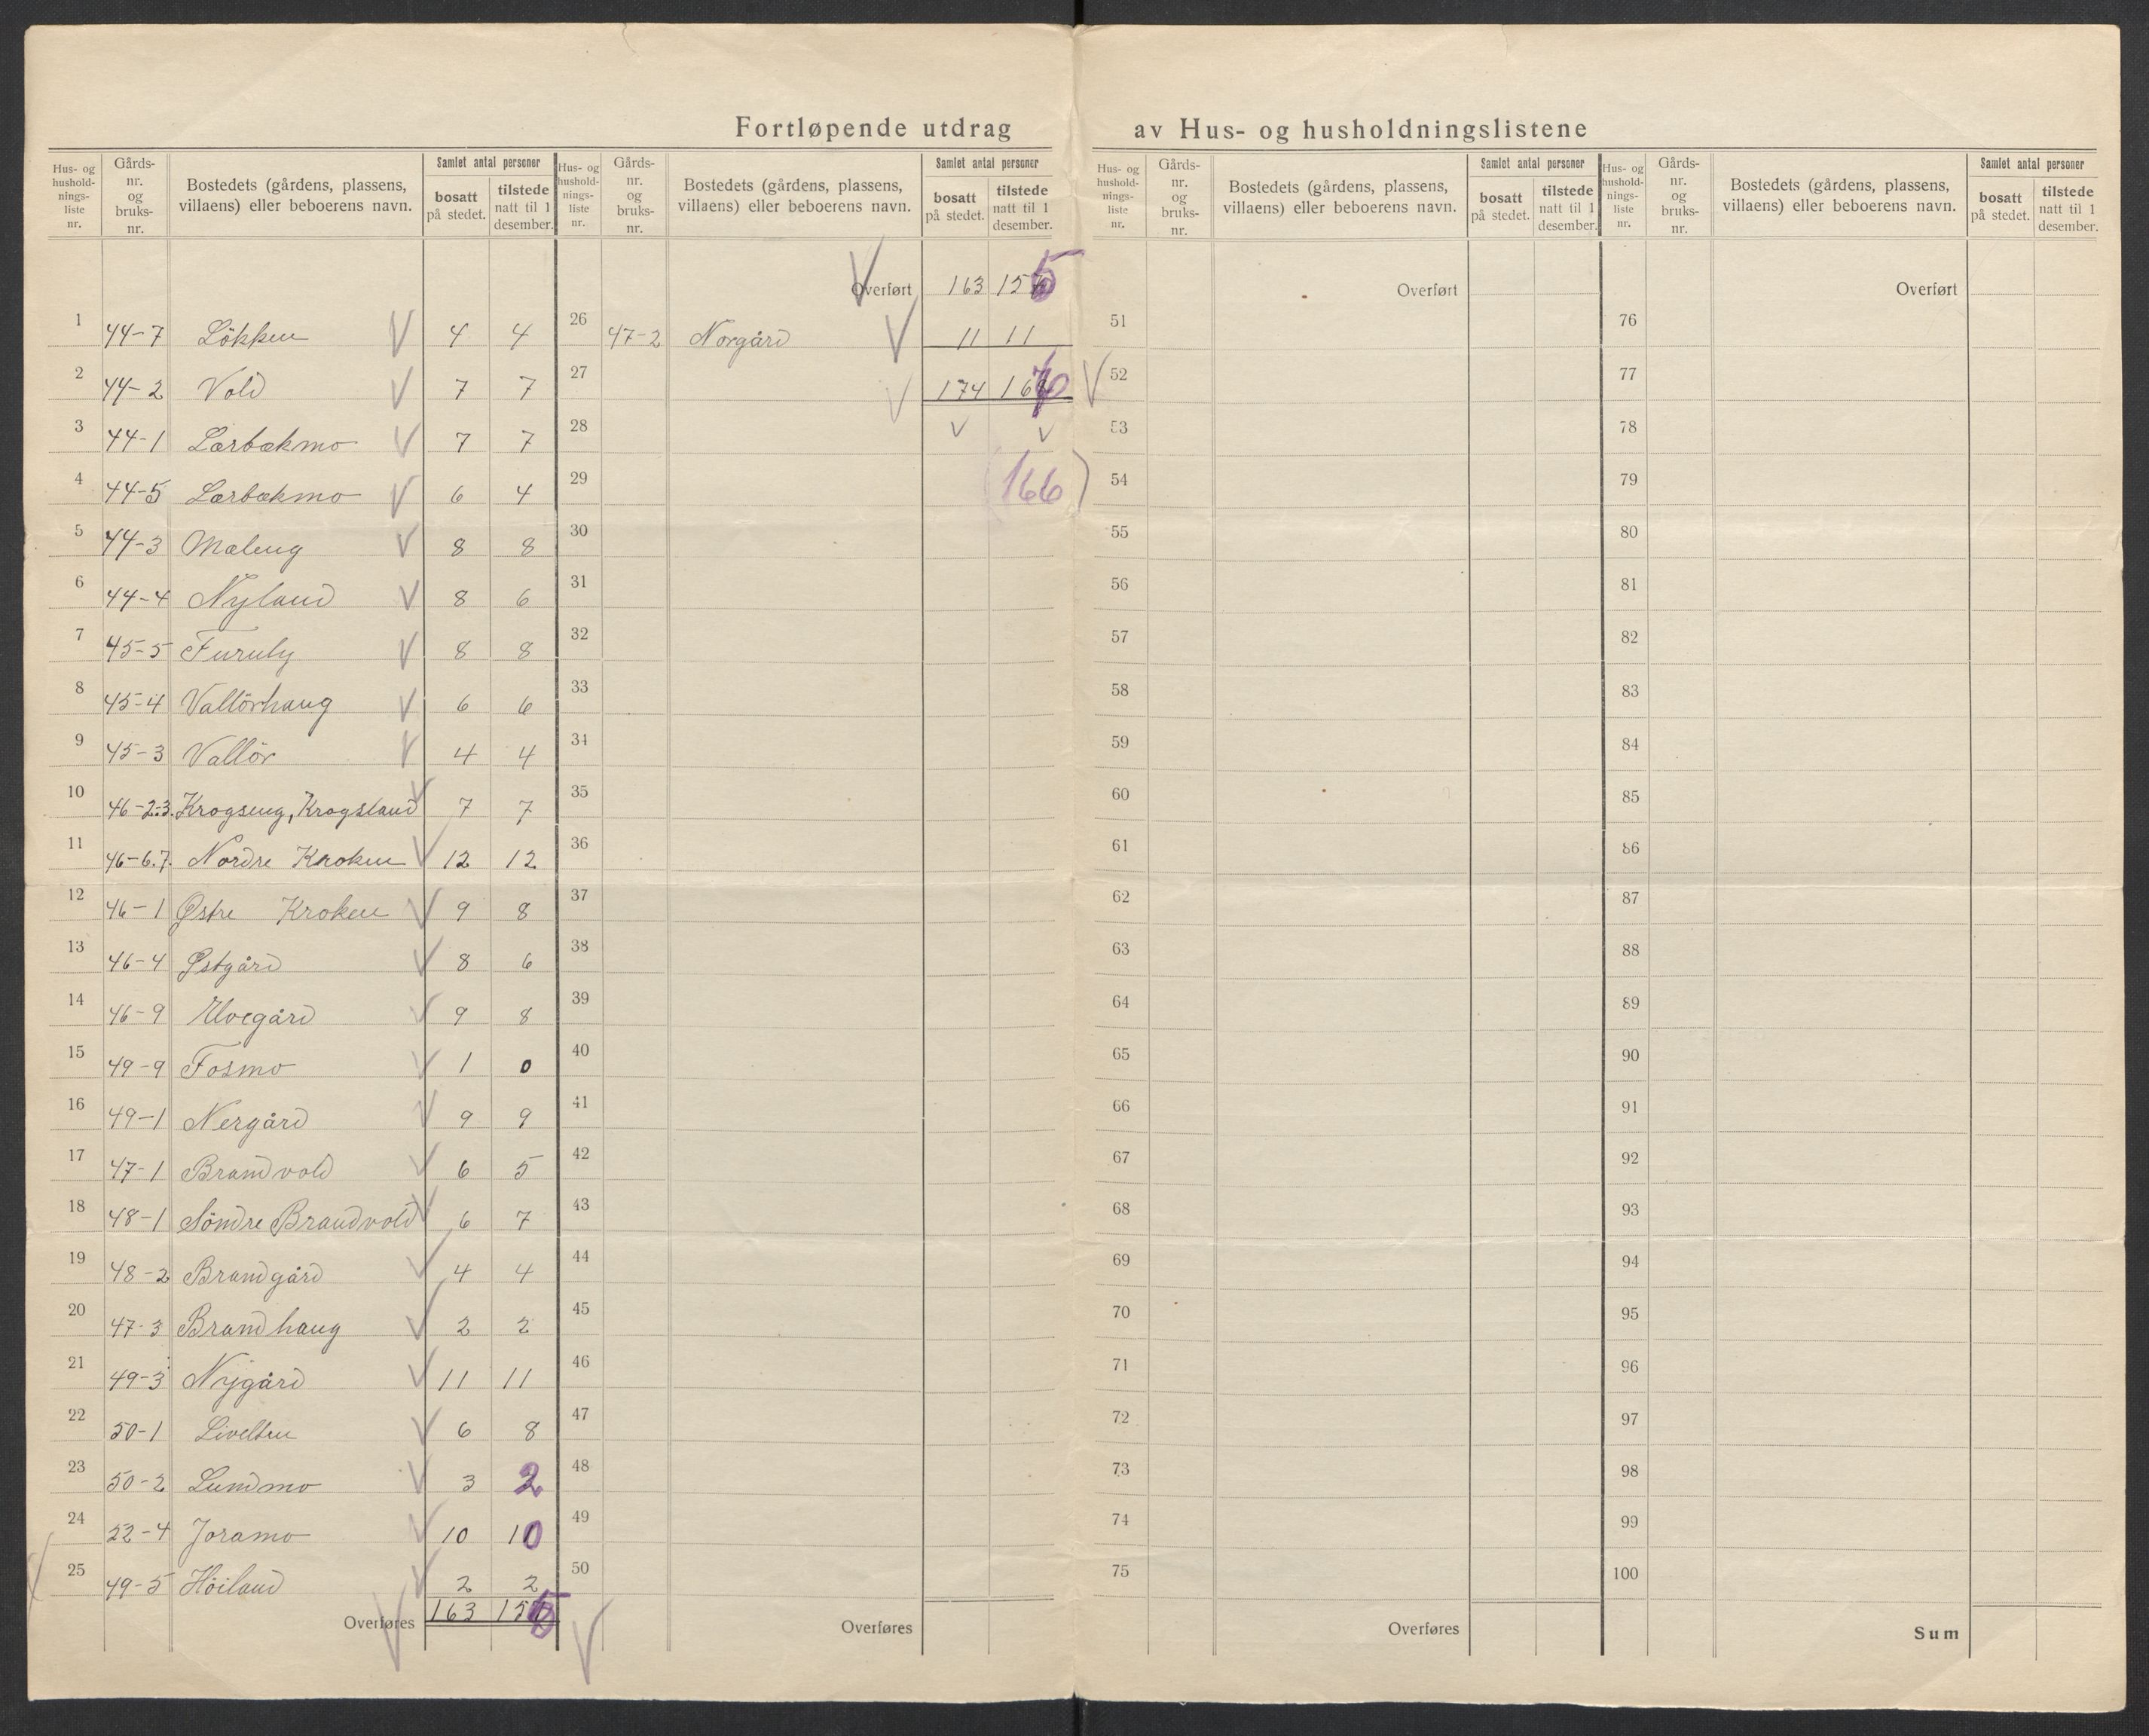 Fortløpende utdrag av Hus- og husholdningslistene
Hus- og hushold-nings-liste nr. Gårds-nr. og bruks-nr. Bostedets (gårdens, plassens, villaens) eller beboerens navn. Samlet antal personer bosatt på stedet. tilstede natt til 1 desember.
1 44-7 Løkken V 4 4
2 44-2 Vold V 7 7
3 44-1 Lærbækmo V 7 7
4 44-5 Lærbækmo V 6 4
5 44-3 Mæleng V 8 8
6 44-4 Nyland V 8 6
7 45-5 Furuly V 8 8
8 45-4 Vallörhaug V 6 6
9 45-3 Vallör V 4 4
10 46-2.3. Krogseng, Krogsland V 7 7
11 46-6.7. Nordre Kroken V 12 12
12 46-1 Østre Kroken V 9 8
13 46-4 Østgård V 8 6
14 46-9 Moegård V 9 8
15 49-9 Fosmo V 1 0
16 49-1 Nergård V 9 9
17 47-1 Brandvold V 6 5
18 48-1 Söndre Brandvold V 6 7
19 48-2 Brandgård V 4 4
20 47-3 Brandhaug V 2 2
21 49-3 Nygård V 11 11
22 50-1 Livelten V 6 8
23 50-2 Lundmo V 3 2
24 22-4 Joramo V 10 10
25 49-5 Höiland V 2 2
Overføres 163 155
Hus- og hushold-nings-liste nr. Gårds-nr. og bruks-nr. Bostedets (gårdens, plassens, villaens) eller beboerens navn. Samlet antal personer bosatt på stedet. tilstede natt til 1 desember.
V Overført 163 155
26 47-2 Norgård V 11 11
27 V 174 V
28 V V
29 (166)
30
31
32
33
34
35
36
37
38
39
40
41
42
43
44
45
46
47
48
49
50
Overføres
Hus- og hushold-nings-liste nr. Gårds-nr. og bruks-nr. Bostedets (gårdens, plassens, villaens) eller beboerens navn. Samlet antal personer bosatt på stedet. tilstede natt til 1 desember.
Overført
51
52
53
54
55
56
57
58
59
60
61
62
63
64
65
66
67
68
69
70
71
72
73
74
75
Overføres
Hus- og hushold-nings-liste nr. Gårds-nr. og bruks-nr. Bostedets (gårdens, plassens, villaens) eller beboerens navn. Samlet antal personer bosatt på stedet. tilstede natt til 1 desember.
Overført
76
77
78
79
80
81
82
83
84
85
86
87
88
89
90
91
92
93
94
95
96
97
98
99
100
Sum